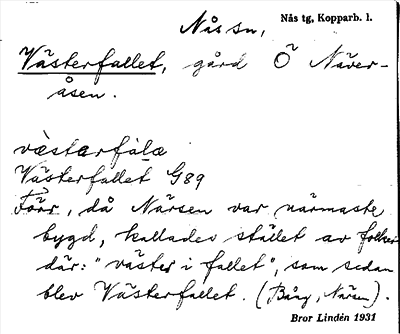 Nås sn,
Nås tg, Kopparb. l.
Västerfallet, gård Ö Näver-
åsen.
væstɑrfàlæ
Västerfallet G89
Förr, då Närsen var närmaste
bygd, kallades stället av folket
där: "väster i fallet", som sedan
blev Västerfallet. (Bång, Närsen).
Bror Lindén 1931